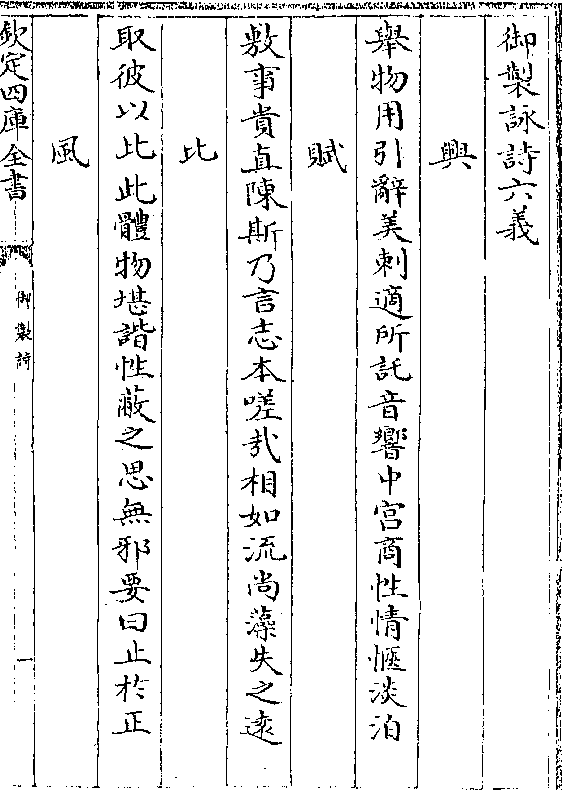 御製詠詩六義
興
舉物用引辭美刺適所託音響中宮商性情愜淡泊
賦
敷事貴直陳斯乃言志本嗟哉相如流尚藻失之遠
比
取彼以比此體物堪諧性蔽之思無邪要曰止於正
風
欽定四庫全書
御製詩
一